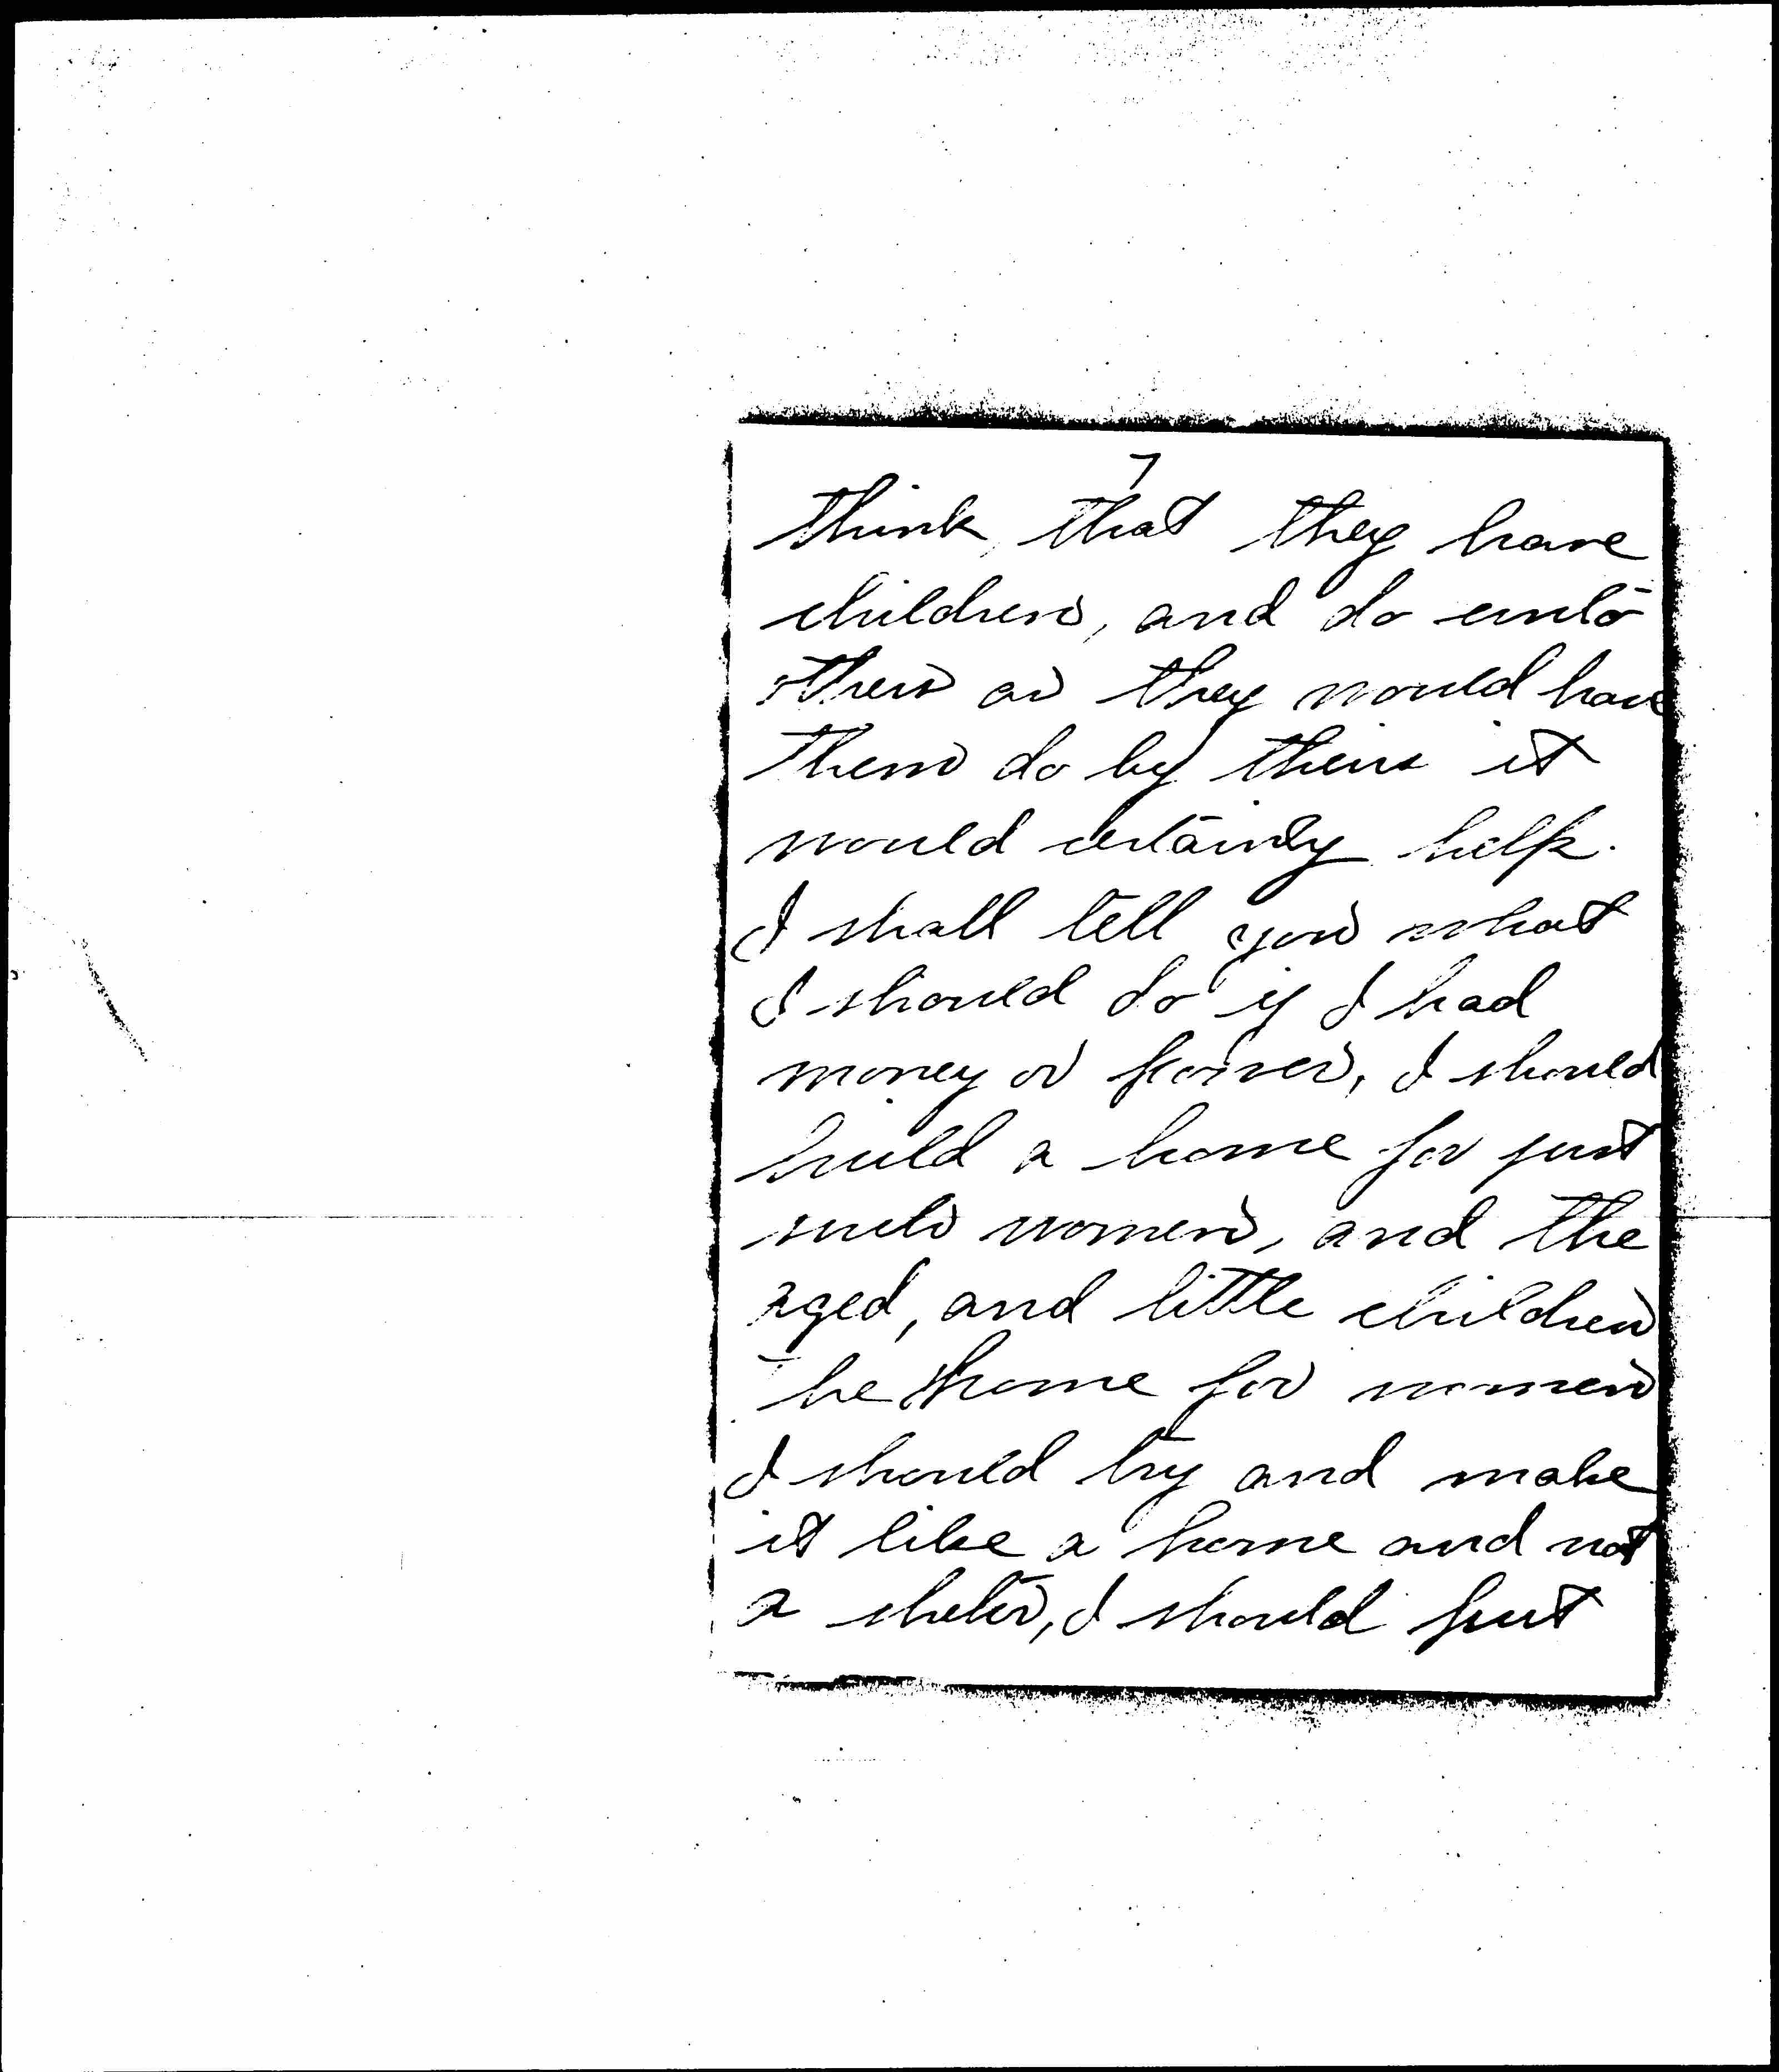 7
think, that they have
children, and do unto
others as they would have
them do by theirs it
would certainly help.
I shall tell you what
I should do if I had
money or power, I should
build a home for just
such women, and the
aged, and little children
The home for women
I should try and make
it like a home and not
a shelter, I should put